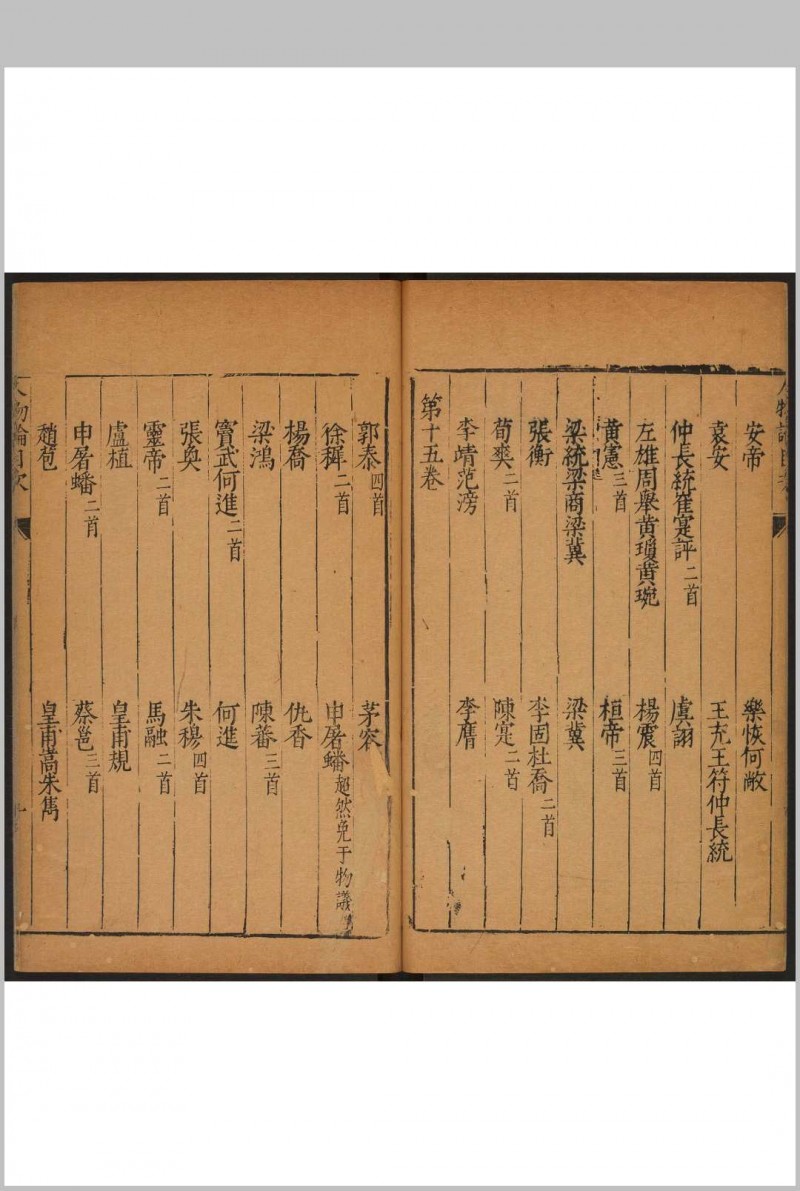 安帝 樂恢何敞
袁安 王充王符仲長統
仲長統崔寔評二首 虞詡
左雄周舉黃瓊黃琬 楊震四首
黃憲三首 桓帝三首
梁統梁商梁冀 梁冀
張衡 李固杜喬二首
荀爽二首 陳寔二首
李靖范滂 李膺
第十五卷
郭泰四首 茅容
徐穉二首 申屠蟠超然免于物議
楊喬 仇香
梁鴻 陳蕃三首
竇武何進二首 何進
張奐 朱穆四首
靈帝二首 馬融二首
盧植 皇甫規
申屠蟠二首 蔡邕三首
趙苞 皇甫嵩朱雋
人物論目次